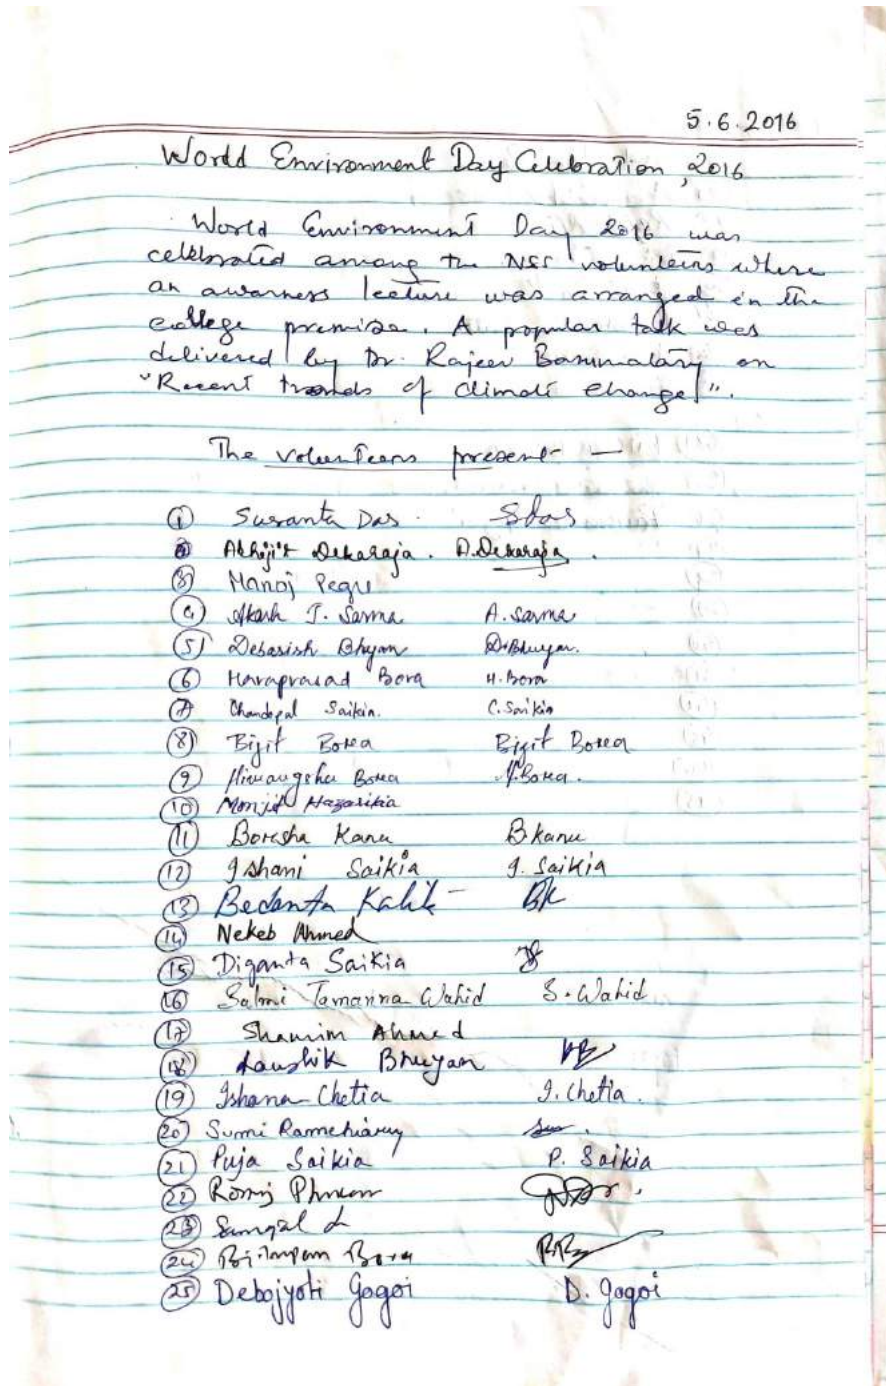 5.6.2016
World Environment Day Celebration, 2016
World Environment Day 2016 was
celebrated among the NSS volunteers where
an awarness lecture was arranged in the
college premise. A popular talk was
delivered by Dr. Rajeev Basumatary on
"Recent trends of climate change".
The volunteers present —
① Susanta Das. SDas
② Abhijit Dekaraja. A. Dekaraja.
③ Manoj Pegu
④ Akash J. Sarma A. Sarma
⑤ Debasish Bhyan D. Bhuyan.
⑥ Haraprasad Bora H. Bora
⑦ Chandopal Saikia. C. Saikia
⑧ Bijit Borea Bijit Borea
⑨ Himangshu Borea H. Borea.
⑩ Monjit Hazarikia
⑪ Boresha Kanu B Kanu
⑫ Ishani Saikia I. Saikia
⑬ Bedanta Kalik BK
⑭ Nekeb Ahmed
⑮ Diganta Saikia
⑯ Salmi Tamanna Wahid S. Wahid
⑰ Shamim Ahmed
⑱ Kaushik Bhuyan KB
⑲ Ishana Chetia I. Chetia.
⑳ Sumi Ramchiary
㉑ Puja Saikia P. Saikia
㉒ Romj Phukan
㉓
㉔ Bora
㉕ Debojyoti Gogoi D. Gogoi